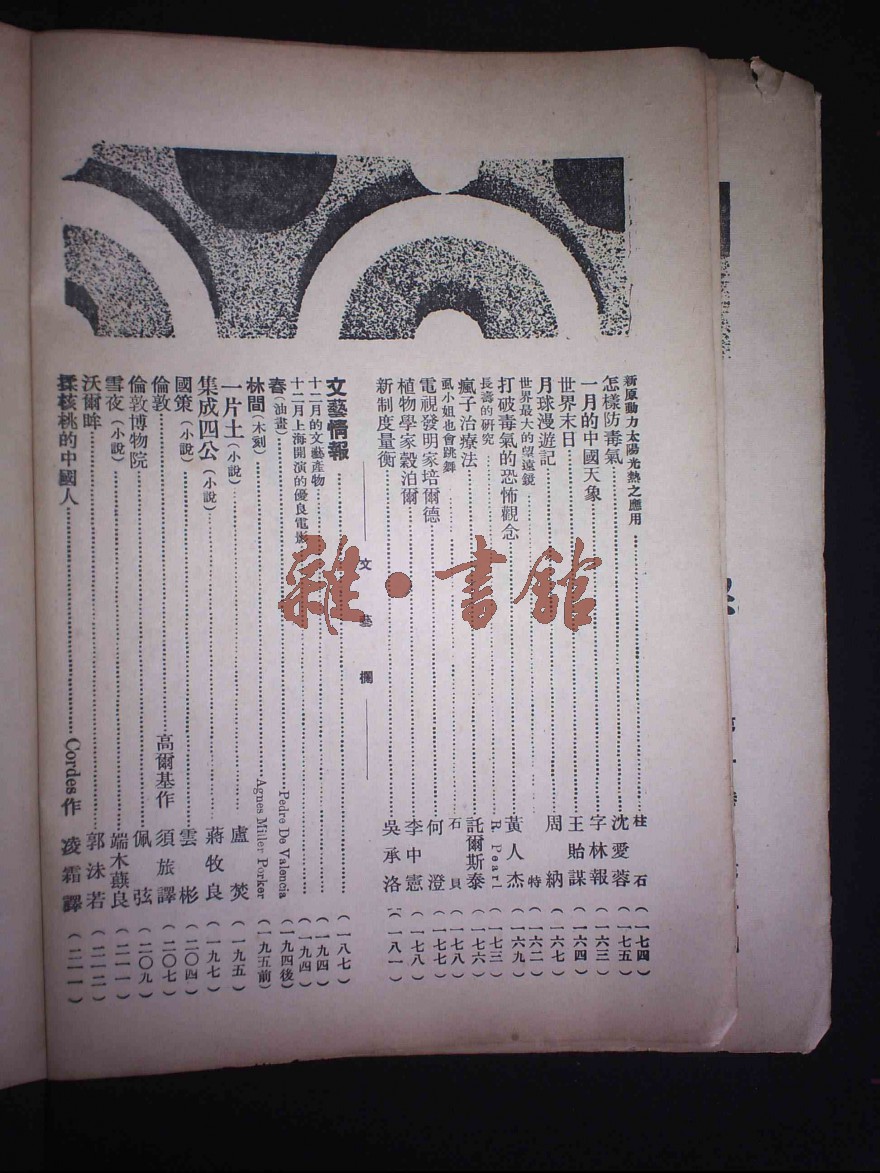 新原動力太陽光熱之應用 柱石 (一七四)
怎樣防毒氣 沈愛蓉 (一七五)
一月的中國天象 字林報 (一六三)
世界末日 王貽謀 (一六四)
月球漫遊記 周納 (一六七)
世界最大的望遠鏡 特 (一六二)
打破毒氣的恐怖觀念 黃人杰 (一六九)
長壽的研究 R. Pearl (一七三)
瘋子治療法 託爾斯泰 (一七六)
虱小姐也會跳舞 石貝 (一七八)
電視發明家培爾德 何澄 (一七七)
植物學家穀泊爾 李中憲 (一七八)
新制度量衡 吳承洛 (一八一)
文藝欄
文藝情報 (一八七)
十二月的文藝產物 (一九四)
十二月上海開演的優良電影 (一九四)
春(油畫) Pedro De Valencia (一九四後)
林間(木刻) Agnes Miller Porker (一九五前)
一片土(小說) 盧焚 (一九五)
集成四公(小說) 蔣牧良 (一九七)
國策(小說) 雲彬 (二〇四)
倫敦 高爾基作 須旅譯 (二〇七)
倫敦博物院 佩弦 (二〇九)
雪夜(小說) 端木蕻良 (二一一)
沃爾眸 郭沫若 (二一二)
揉核桃的中國人 Cordes作 凌霜譯 (二二一)
雜·書館